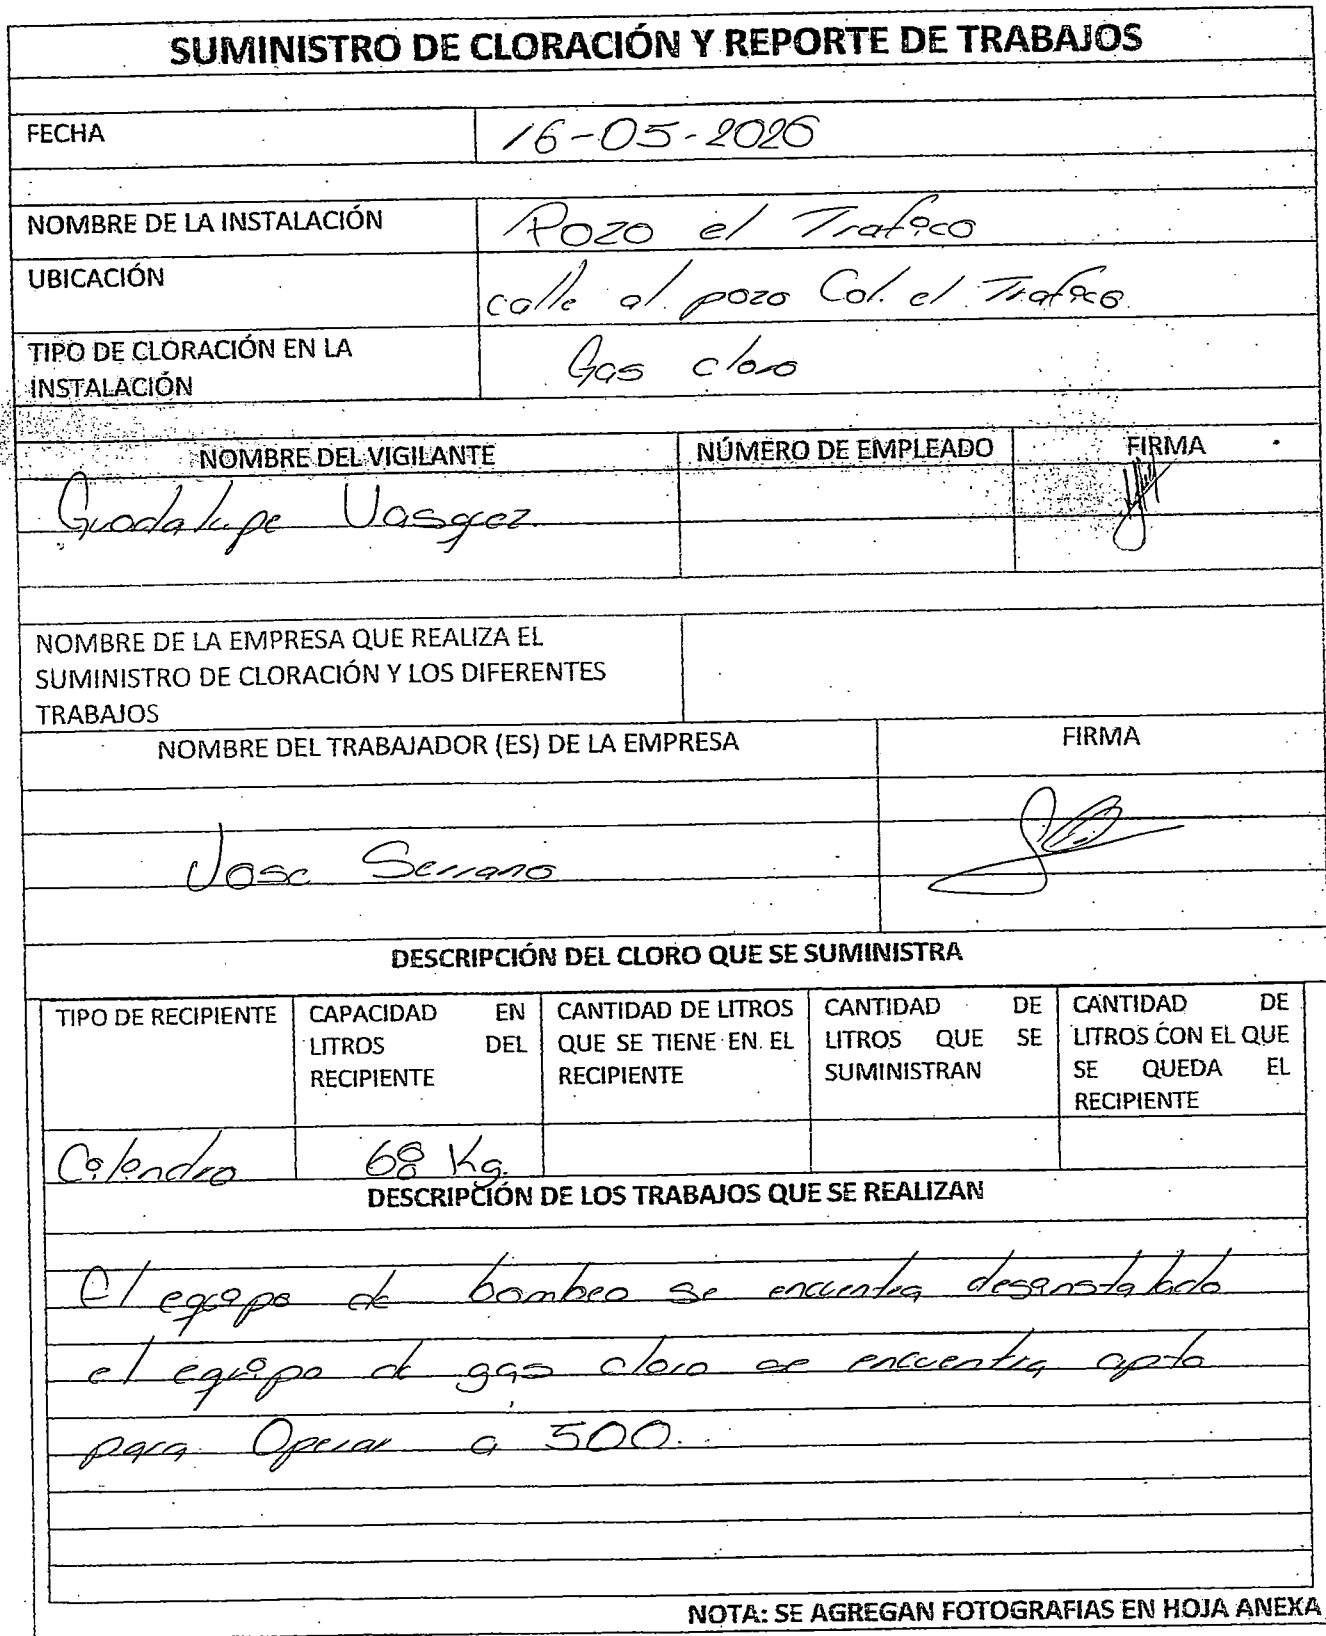 SUMINISTRO DE CLORACIÓN Y REPORTE DE TRABAJOS
FECHA 16-05-2026
NOMBRE DE LA INSTALACIÓN Pozo el Trafico
UBICACIÓN calle al pozo Col. el Trafico
TIPO DE CLORACIÓN EN LA
INSTALACIÓN
Gas cloro
NOMBRE DEL VIGILANTE NÚMERO DE EMPLEADO FIRMA
Guadalupe Vasqez
NOMBRE DE LA EMPRESA QUE REALIZA EL
SUMINISTRO DE CLORACIÓN Y LOS DIFERENTES
TRABAJOS
NOMBRE DEL TRABAJADOR (ES) DE LA EMPRESA FIRMA
Jose Serrano
DESCRIPCIÓN DEL CLORO QUE SE SUMINISTRA
TIPO DE RECIPIENTE
CAPACIDAD EN
LITROS DEL
RECIPIENTE
CANTIDAD DE LITROS
QUE SE TIENE EN EL
RECIPIENTE
CANTIDAD DE
LITROS QUE SE
SUMINISTRAN
CANTIDAD DE
LITROS CON EL QUE
SE QUEDA EL
RECIPIENTE
Cilindro 68 Kg.
DESCRIPCIÓN DE LOS TRABAJOS QUE SE REALIZAN
El equipo de bombeo se encuentra desinstalado
el equipo de gas cloro se encuentra apto
para Operar a 500.
NOTA: SE AGREGAN FOTOGRAFIAS EN HOJA ANEXA